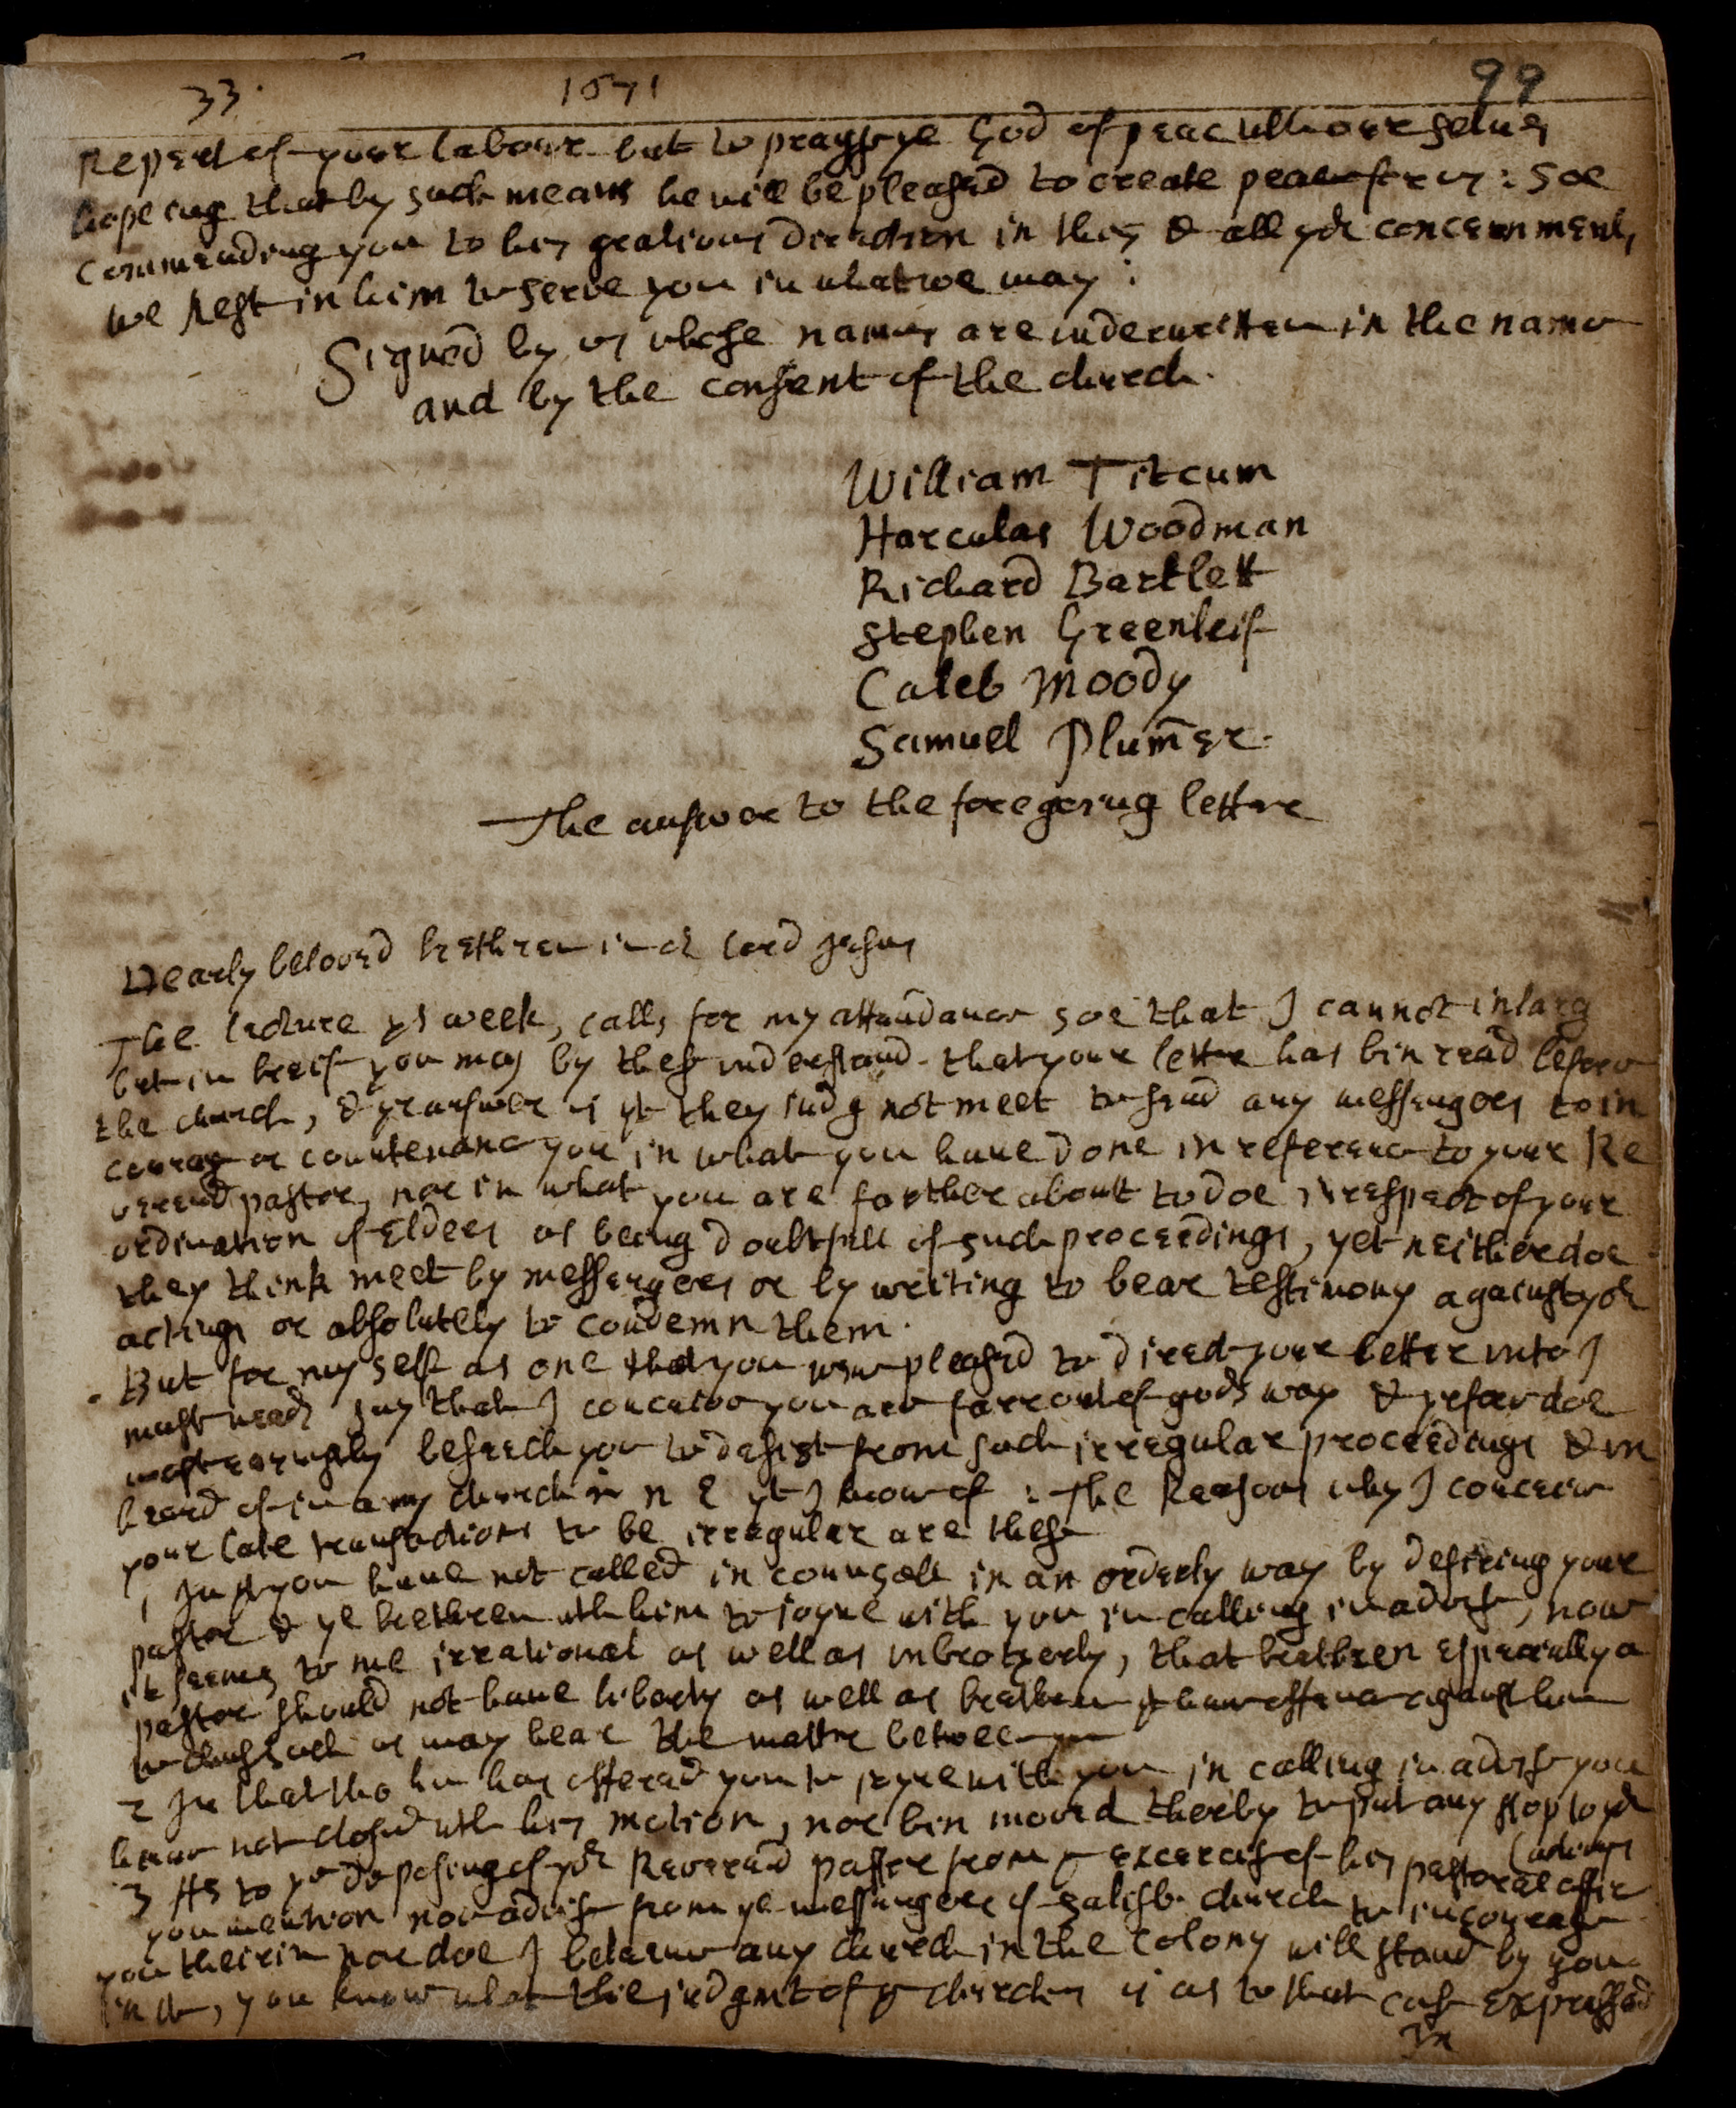 33. 1671 99
Repent of your labour but to pray to ye God of peac with our selves
hopeing that by such means he will be pleased to create peace for us: Soe
Commending you to his gratious direction in this & all yor concernments
we Rest in him to serve you in what we may:
Signed by us whose names are underwritten in the name
and by the consent of the church.
William Titcum
Harculas Woodman
Richard Bartlett
Stephen Greenleif
Caleb Moody
Samuel Plumer.
The answer to the foregoing letter
Dearly beloved brethren in or Lord Jesus
The lecture ys week, calls for my attendance soe that I cannot inlarg
but in breif you may by thes understand that your letter has bin read before
the church, & ye answer is yt they judg not meet to send any messengers to in
courag or countenanc you in what you have done in referenc to your Re
verend pastor, nor in what you are farther about to doe in respect of your
ordination of Elders as being doubtfull of such proceedings, yet neither doe
they think meet by messengers or by writing to bear testimony against yor
actings or absolutely to condemn them.
But for my self as one that you were pleased to direct your letter unto I
must needs say that I conceive you are farr out of gods way & yrfore doe
most earnestly beseech you to desist from such irregular proceedings & un
heard of in any church in N E yt I know of: The Reasons why I conceiv
your late transactions to be irregular are these
1 In yt you have not called in counsell in an orderly way by desiring your
pastor & ye brethren with him to joyne with you in calling in advise, now
it seems to me irrational as well as unbrotherly, that brethren especially a
pastor should not have liberty as well as brethren yt have offence against him
to chuse such as may hear the matter between ym
2 In that tho he has offered you to joyne with you in calling in advise you
have not closed with his motion, nor bin moved therby to put any stop to yor
(actings
3 As to ye deposing of yor Reverend pastor from ye exercise of his pastoral offic
you mention noe advise from ye messengers of Salisb. church to incourage
you therein nor doe I beleeve any church in the colony will stand by you
in it, you know what the judgmt of ye churches is as to that case expressed
In